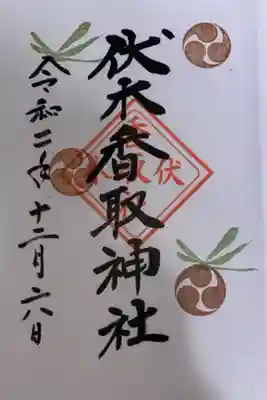 伏木香取神社
令和二年十二月六日